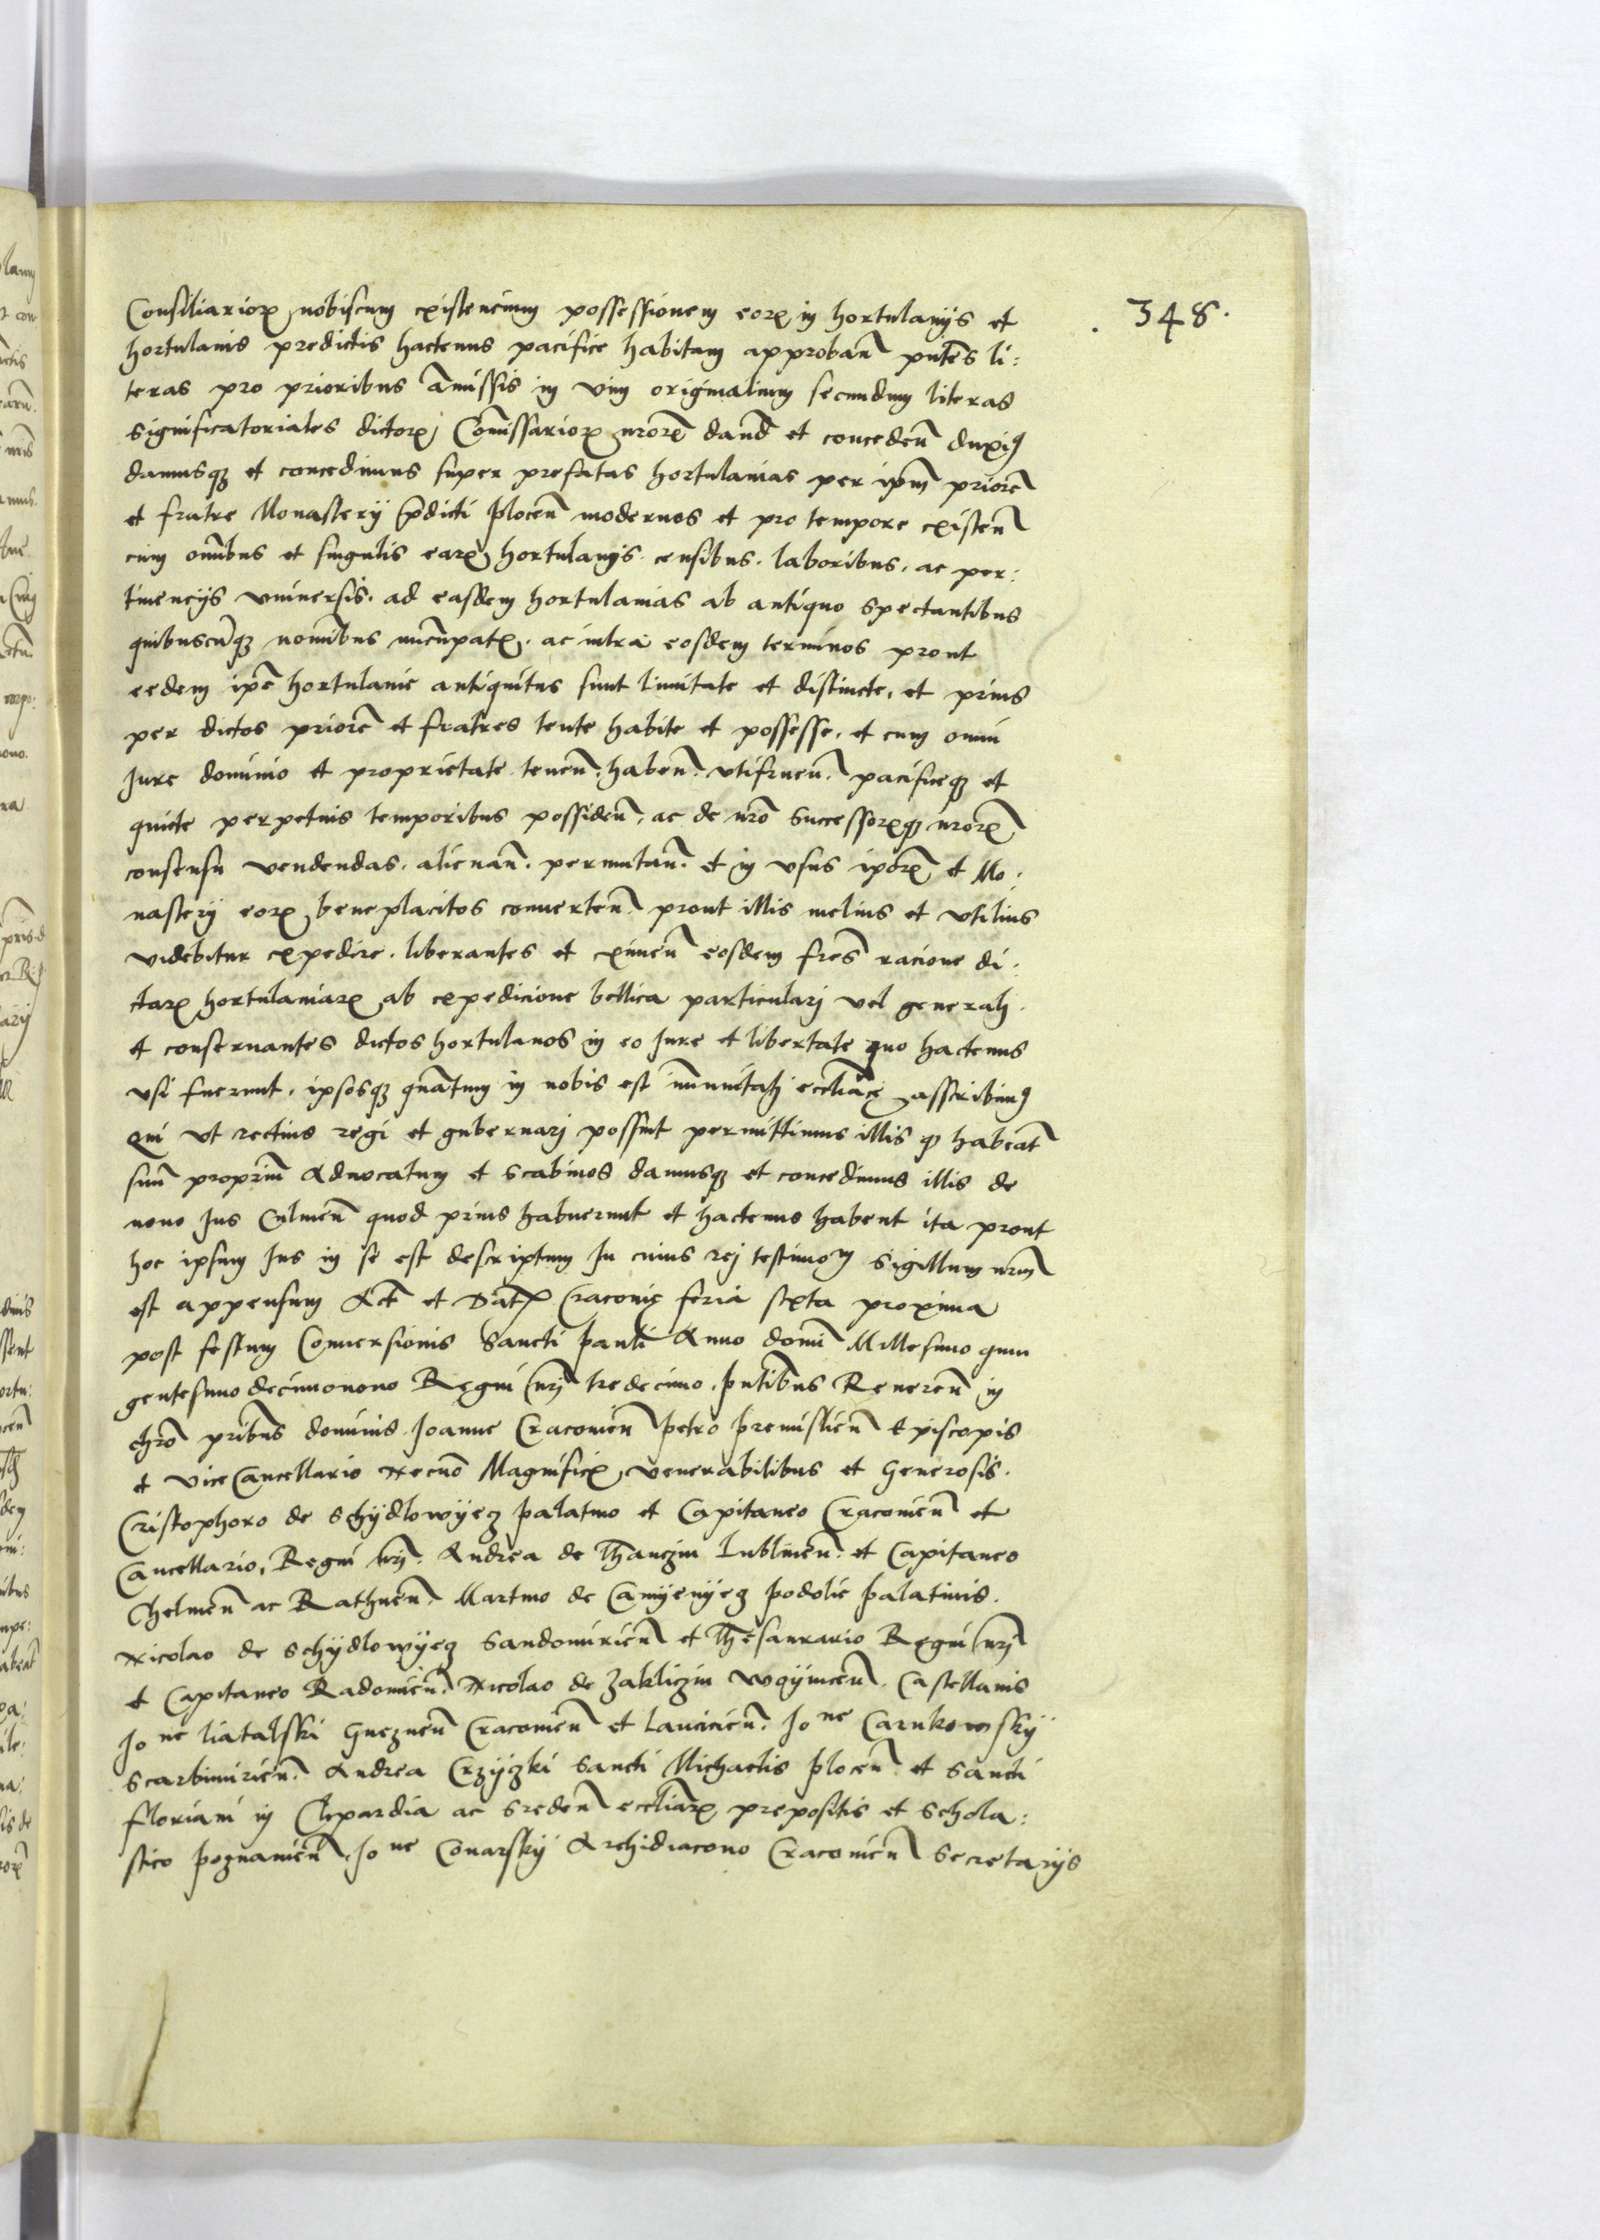 . 348 .
Consiliarioꝝ nobiscum existencium possessionem eoꝝ in hortulanijs et
hortulanis predictis hactenus pacifice habitam approban̄ pn̄tes li:
teras pro prioribus amissis in vim originalium secundum literas
significatoriales dictoꝝ Com̄issarioꝝ nr̄oꝝ dand̄ et conceden̄ duximꝰ
damusqꝫ et concedimus super prefatas hortulanias per ip̄m priorē
et fratre Monasterij p̄dicti Plocen̄ modernos et pro tempore existen̄
cum omībus et singulis eaꝝ hortulanijs . censibus . laboribus . ac per:
tinencijs vniuersis . ad easdem hortulanias ab antiquo spectantibus
quibuscūqꝫ nominībus nuncupatꝭ . ac intra eosdem terminos prout
eedem ip̄e hortulanie antiquitus sunt limitate et distincte . et prius
per dictos priorē et fratres tente habite et possesse . et cum omni
Jure dominio et proprietate tenen̄ . haben̄ . vtifruen̄ . pacificeqꝫ et
quiete perpetuis temporibus possiden̄ . ac de nr̄o successoꝝqꝫ nr̄oꝝ
consensu vendendas . alienan̄ . permutan̄ . et in vsus ip̄oꝝ et Mo:
nasterij eoꝝ beneplacitos conuerten̄ prout illis melius et vtilius
videbitur expedire . liberantes et eximen̄ eosdem fr̄es racione di:
ctaꝝ hortulaniaꝝ ab expedicione bellica particularj vel generalj .
et conseruantes dictos hortulanos in eo Jure et libertate quo hactenus
vsi fuerunt . ipsosqꝫ quātum in nobis est im̄unitatj eccl̄iasticę asscribimꝰ
Qui vt rectius regi et gubernarj possint permittimus illis qꝫ habeāt
suū propriū Aduocatum et scabinos damusqꝫ et concedimus illis de
nouo Jus Culmen̄ quod prius habuerunt et hactenus habent ita prout
hoc ipsum Jus in se est descriptum In cuius rej testimoᵐ Sigillum nr̄m
est appensum Act̄ et Datꝭ Cracouię feria sexta proxima
post festum Conuersionis Sancti Pauli Anno domi Millesimo quin
gentesimo decimonono Regni nr̄j tredecimo . Pn̄tibus Reueren̄ in
chr̄o pr̄ibus dominis Joanne Cracouien̄ Petro Premislien̄ Episcopis
et vice Cancellario Necnō Magnificꝭ, venerabilibus et Generosis .
Cristophoro de Schÿdlowÿecz Palatino et Capitaneo Cracouien̄ et
Cancellario, Regni nr̄j . Andrea de Thanczin Lublinen̄ . et Capitaneo
Chelmen̄ ac Rathnen̄ . Martino de Camÿenÿecz Podolie Palatinis .
Nicolao de Schÿdlowÿecz Sandomirien̄ et Thesaurario Regni nr̄j
et Capitaneo Radomien̄ . Nicolao de Zakliczin Woÿnicen̄ . Castellanis
Joⁿᵉ Liatalski Gneznen̄ Cracouien̄ et Lancicien̄ . Joⁿᵉ Carnkowskÿ
Scarbimirien̄ . Andrea Crzÿczki Sancti Michaelis Plocen̄ et Sancti
Floriani in Clepardia ac Sreden̄ eccl̄iaꝝ prepositis et Schola:
stico Poznanien̄ . Joⁿᵉ Conarskÿ Archidiacono Cracouien̄ Secretarijs